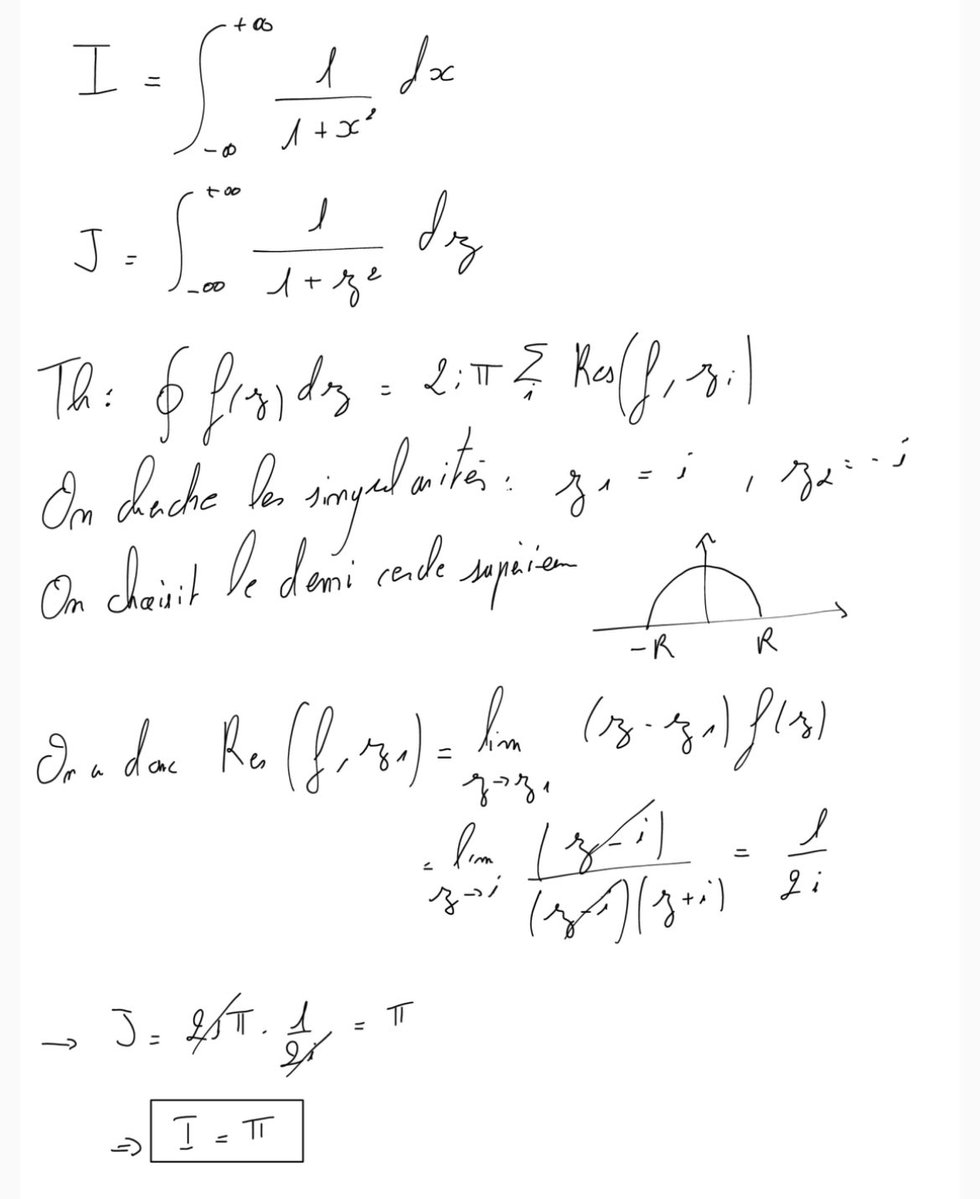 I = ∫_{-∞}^{+∞} 1/(1+x²) dx
J = ∫_{-∞}^{+∞} 1/(1+z²) dz
Th: ∮ f(z) dz = 2iπ Σ_i Res(f, z_i)
On cherche les singularités: z₁ = i , z₂ = -i
On choisit le demi cercle supérieur
-R R
On a donc Res(f, z₁) = lim_{z→z₁} (z-z₁) f(z)
= lim_{z→i} (z-i)/((z-i)(z+i)) = 1/(2i)
→ J = 2iπ · 1/(2i) = π
⇒ I = π